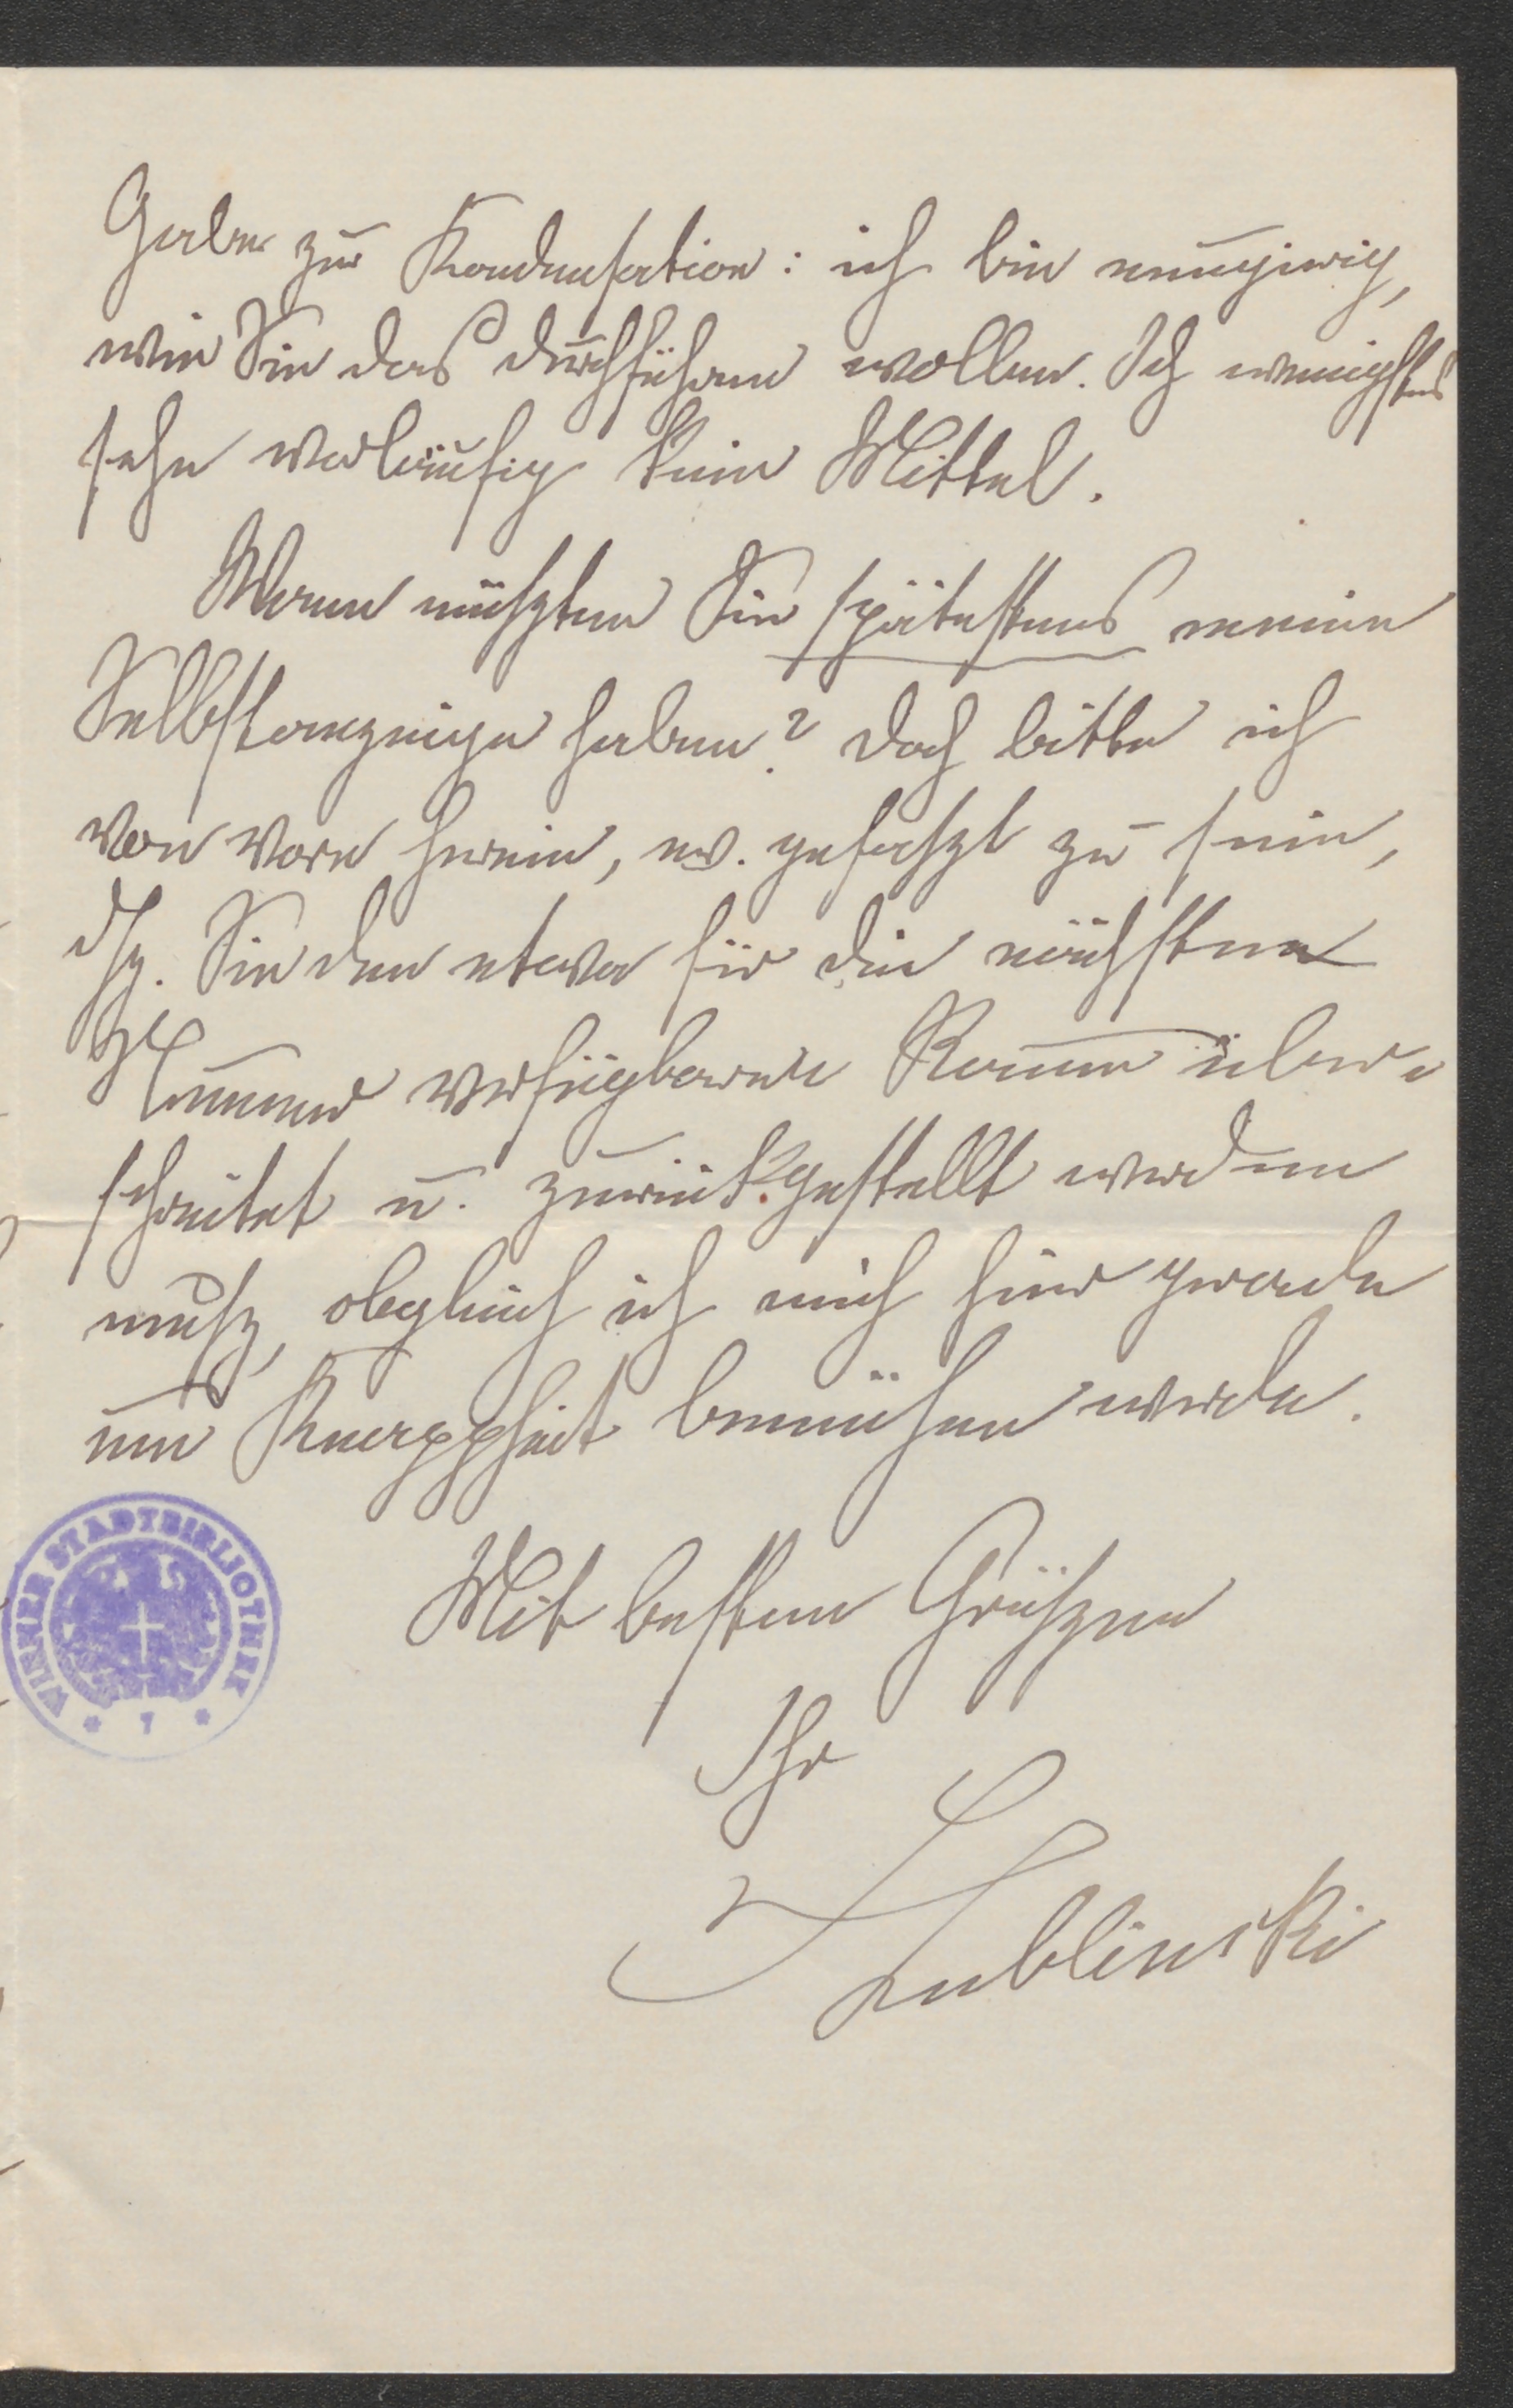 Gabe zur Kondensation: ich bin neugierig,
wie Sie das durchführen wollen. Ich wenigstens
sehe vorläufig kein Mittel.
Wann müßten Sie spätestens meine
Selbstanzeige haben? Doch bitte ich
von vorn herein, ev. gefaßt zu sein,
dß. Sie den etwa für die nächsten
Nummer verfügbaren Raum über-
schreitet u. zurückgestellt werden
muß, obgleich ich mich hier gerade
um Knappheit bemühen werde.
Mit besten Grüßen
Ihr
SLublinski
WIENER STADTBIBLIOTHEK
* 7 *